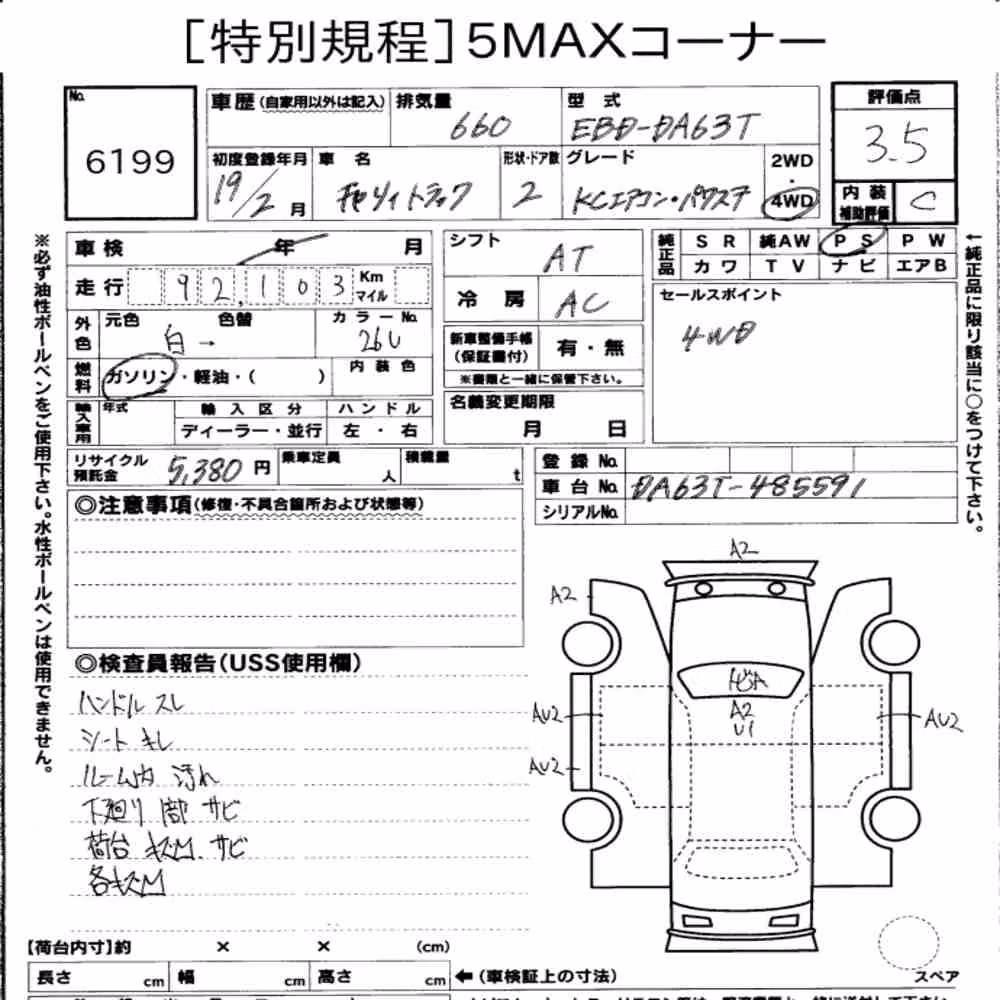 [特別規程]5MAXコーナー
No. 6199
車歴(自家用以外は記入) 排気量 660 型式 EBD-DA63T
評価点 3.5
初度登録年月 19/2月 車名 キャリイトラック 形状・ドア数 2 グレード KCエアコン・パワステ 2WD・4WD
内装補助評価 C
※必ず油性ボールペンをご使用下さい。水性ボールペンは使用できません。
車検 年 月
走行 92,103 Km マイル
外色 元色 白→ 色替 カラーNo. 26U
燃料 ガソリン・軽油・( ) 内装色
輸入車用 年式 輸入区分 ハンドル
ディーラー・並行 左・右
リサイクル預託金 5,380円 乗車定員 人 積載量 t
シフト AT
冷房 AC
新車整備手帳(保証書付) 有・無
※書類と一緒に保管下さい。
名義変更期限
月 日
純正品 SR 純AW PS PW
カワ TV ナビ エアB
セールスポイント
4WD
←純正品に限り該当に○をつけて下さい。
登録No.
車台No. DA63T-485591
シリアルNo.
◎注意事項(修復・不具合箇所および状態等)
◎検査員報告(USS使用欄)
ハンドルスレ
シートキレ
ルーム内 汚れ
下廻り 部 サビ
荷台 キズ凹 サビ
各キズ凹
A2
A2
A2
U1
AU2
AU2
AU2
【荷台内寸】約 × × (cm)
長さ cm 幅 cm 高さ cm ←(車検証上の寸法)
スペア